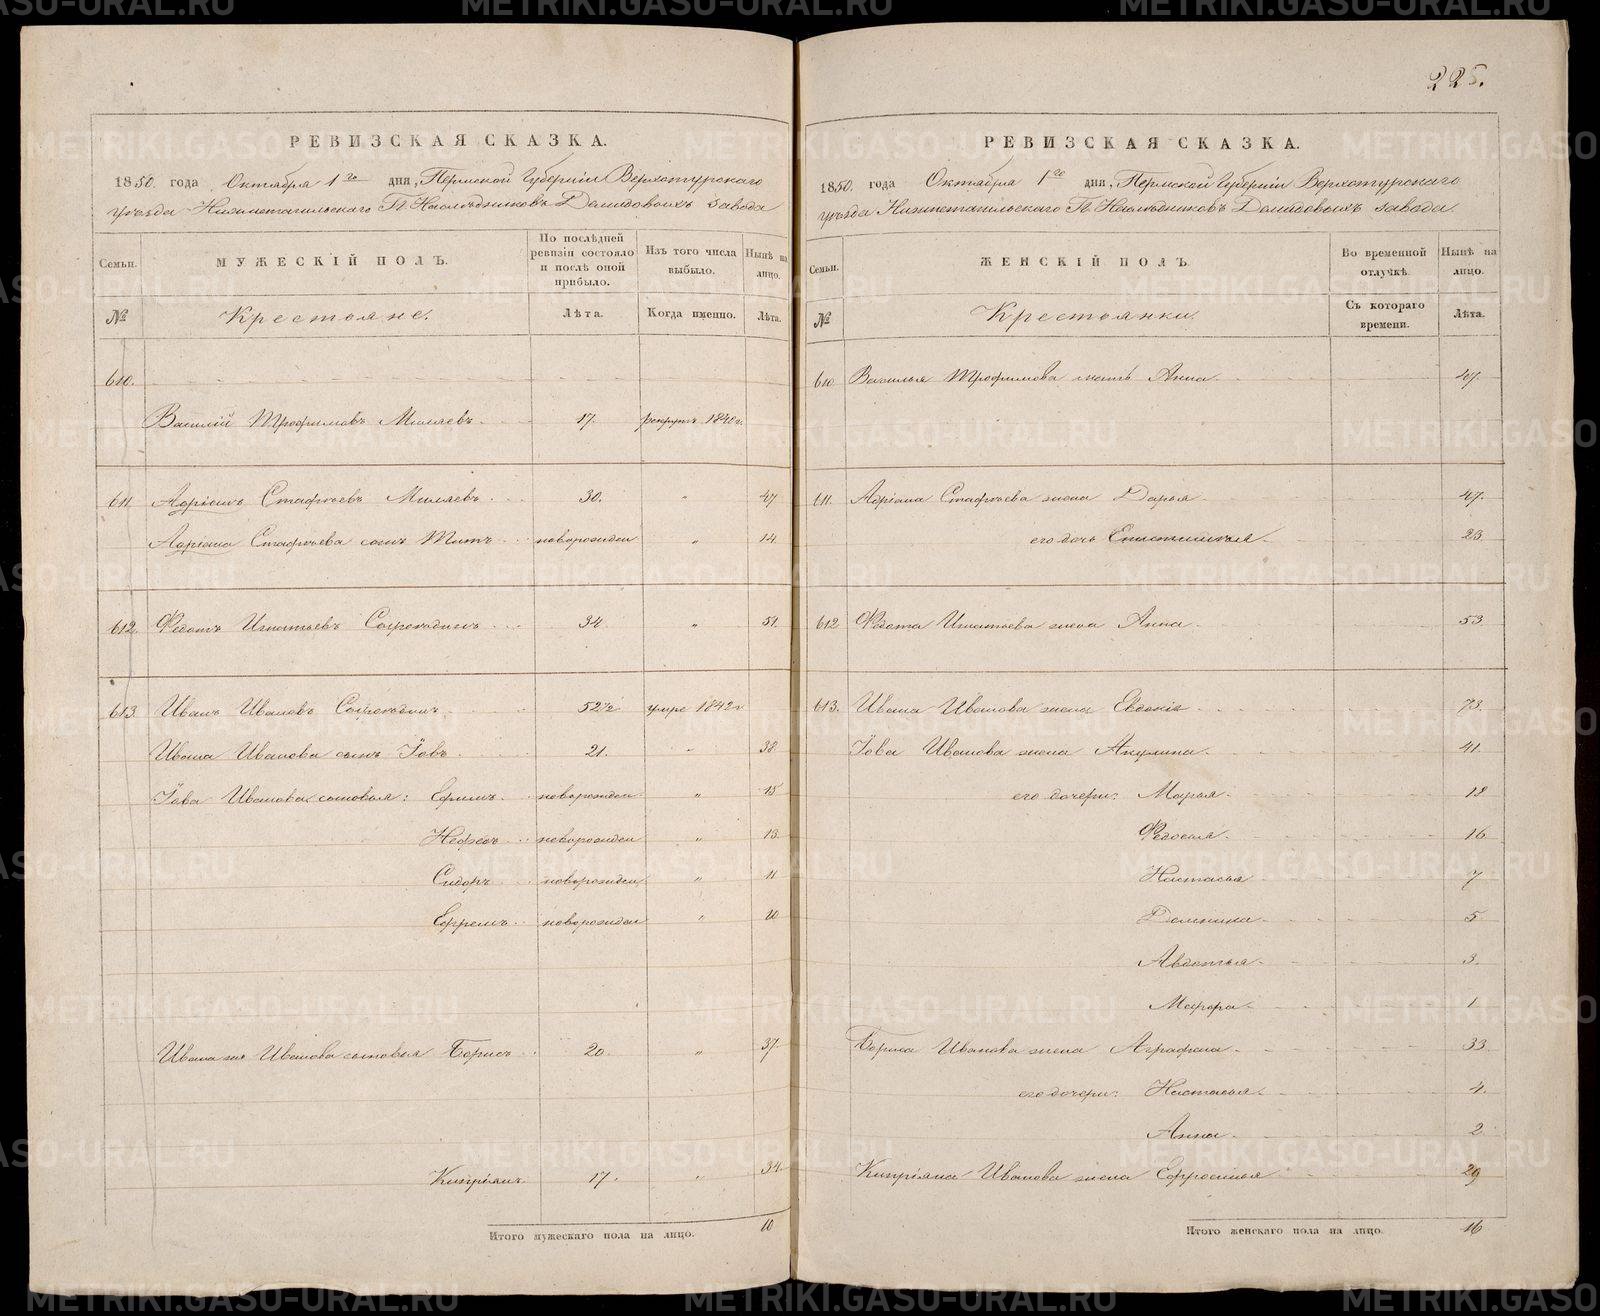 225.
РЕВИЗСКАЯ СКАЗКА.
1850. года Октября 1го дня, Пермской Губерніи Верхотурскаго
уѣзда Нижнетагильскаго Г.г. Наслѣдниковъ Демидовыхъ завода
Семьи. МУЖЕСКІЙ ПОЛЪ. По послѣдней ревизіи состояло и послѣ оной прибыло. Изъ того числа выбыло. Нынѣ на лицо.
№ Крестьяне. Лѣта. Когда именно. Лѣта.
610.
Василій Трофимовъ 17. рекрутъ 1840 г.
611 Адріанъ Стафѣевъ 30. " 47
Адріана Стафѣева сынъ Титъ новорожден " 14
612 Федотъ Игнатьевъ 34 " 51.
613. Иванъ Ивановъ 52½ умре 1842 г
Ивана Иванова сынъ Іовъ 21. " 38
Іова Иванова сыновья: Ефимъ новорожден " 15
Нефедъ новорожден " 13.
Сидоръ новорожден " 11
Ефремъ новорожден " 10
Ивана же Иванова сыновья Борисъ 20. " 37
Кипріянъ 17. " 34.
Итого мужескаго пола на лицо. 10
РЕВИЗСКАЯ СКАЗКА.
1850. года Октября 1го дня, Пермской Губерніи Верхотурскаго
уѣзда Нижнетагильскаго Г.г. Наслѣдниковъ Демидовыхъ завода.
Семьи. ЖЕНСКІЙ ПОЛЪ. Во временной отлучкѣ. Нынѣ на лицо.
№ Крестьянки. Съ котораго времени. Лѣта.
610 Василья Трофимова мать Анна
611. Адріана Стафѣева жена Дарья 47.
его дочь 23.
612 Федота Игнатьева жена Анна 53.
613. Ивана Иванова жена Евдокія 73.
Іова Иванова жена Акулина 41.
его дочери: Марья 18
Федосья 16
Настасья 7
Домника 5
Авдотья 3.
Мавра 1
Бориса Иванова жена Аграфена 33.
его дочери: Настасья 4.
Анна 2
Кипріяна Иванова жена Ефросинья 29
Итого женскаго пола на лицо. 16
METRIKI.GASO-URAL.RU